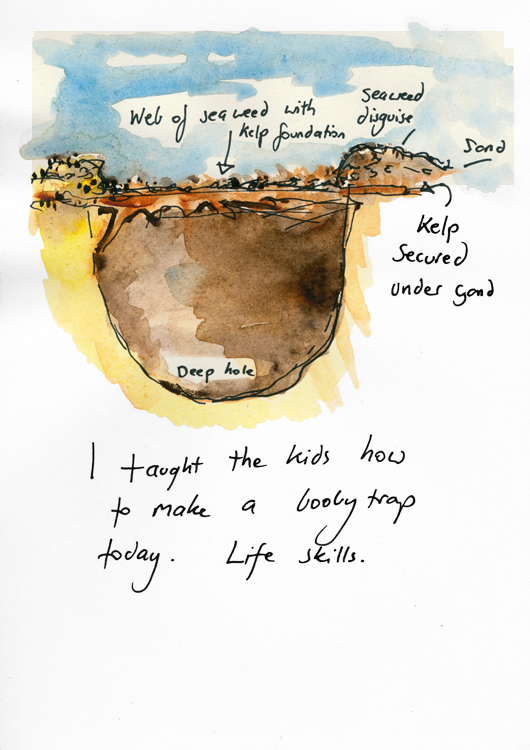 Web of seaweed with
kelp foundation
Seaweed
disguise
Sand
Kelp
Secured
under sand
Deep hole
I taught the kids how
to make a booby trap
today. Life skills.